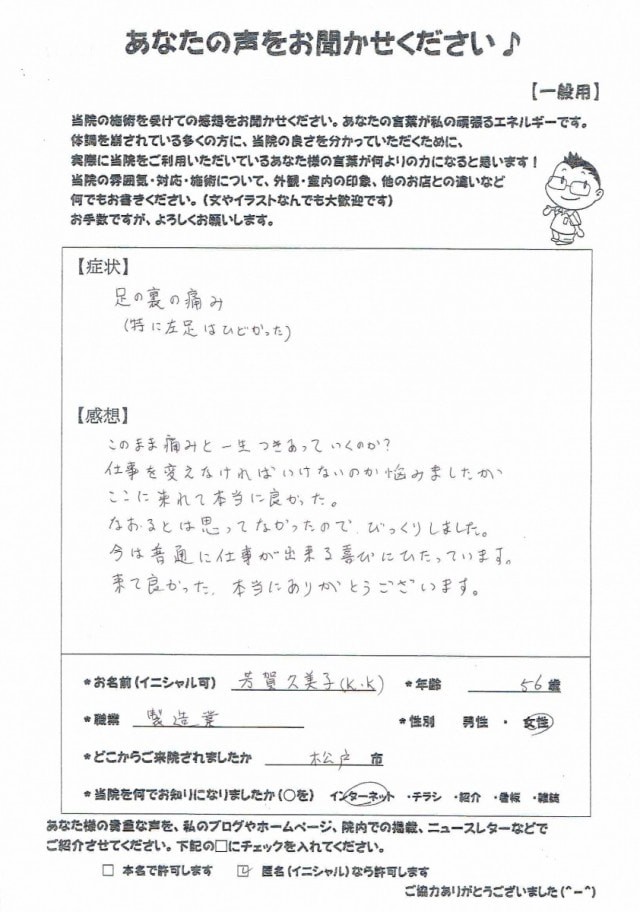 あなたの声をお聞かせください♪
【一般用】
当院の施術を受けての感想をお聞かせください。あなたの言葉が私の頑張るエネルギーです。
体調を崩されている多くの方に、当院の良さを分かっていただくために、
実際に当院をご利用いただいているあなた様の言葉が何よりの力になると思います！
当院の雰囲気・対応・施術について、外観・室内の印象、他のお店との違いなど
何でもお書きください。（文やイラストなんでも大歓迎です）
お手数ですが、よろしくお願いします。
【症状】
足の裏の痛み
(特に左足はひどかった)
【感想】
このまま痛みと一生つきあっていくのか?
仕事を変えなければいけないのか悩みましたが
ここに来れて本当に良かった。
なおるとは思ってなかったので、びっくりしました。
今は普通に仕事が出来る喜びにひたっています。
来て良かった、本当にありがとうございます。
*お名前（イニシャル可） 芳賀久美子(K.K) *年齢 56歳
*職業 製造業 *性別 男性・女性
*どこからご来院されましたか 松戸 市
*当院を何でお知りになりましたか（○を） インターネット ・チラシ ・紹介 ・看板 ・雑誌
あなた様の貴重な声を、私のブログやホームページ、院内での掲載、ニュースレターなどで
ご紹介させてください。下記の□にチェックを入れてください。
□ 本名で許可します ☑ 匿名（イニシャル）なら許可します
ご協力ありがとうございました（^－^）